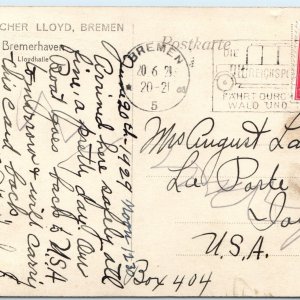 CHER LLOYD, BREMEN
Bremerhaven
Lloydhalle
Postkarte
BREMEN
20-6 29-
20-21
5
DIE
REICHSPO
FÄHRT DURC
WALD UND
June 20th-1929
Arrived here safely all
fine a pretty day! Our
Boat goes back to USA
and will carry
this card back.
Mrs August La
La Porte
Io
U.S.A.
Box 404